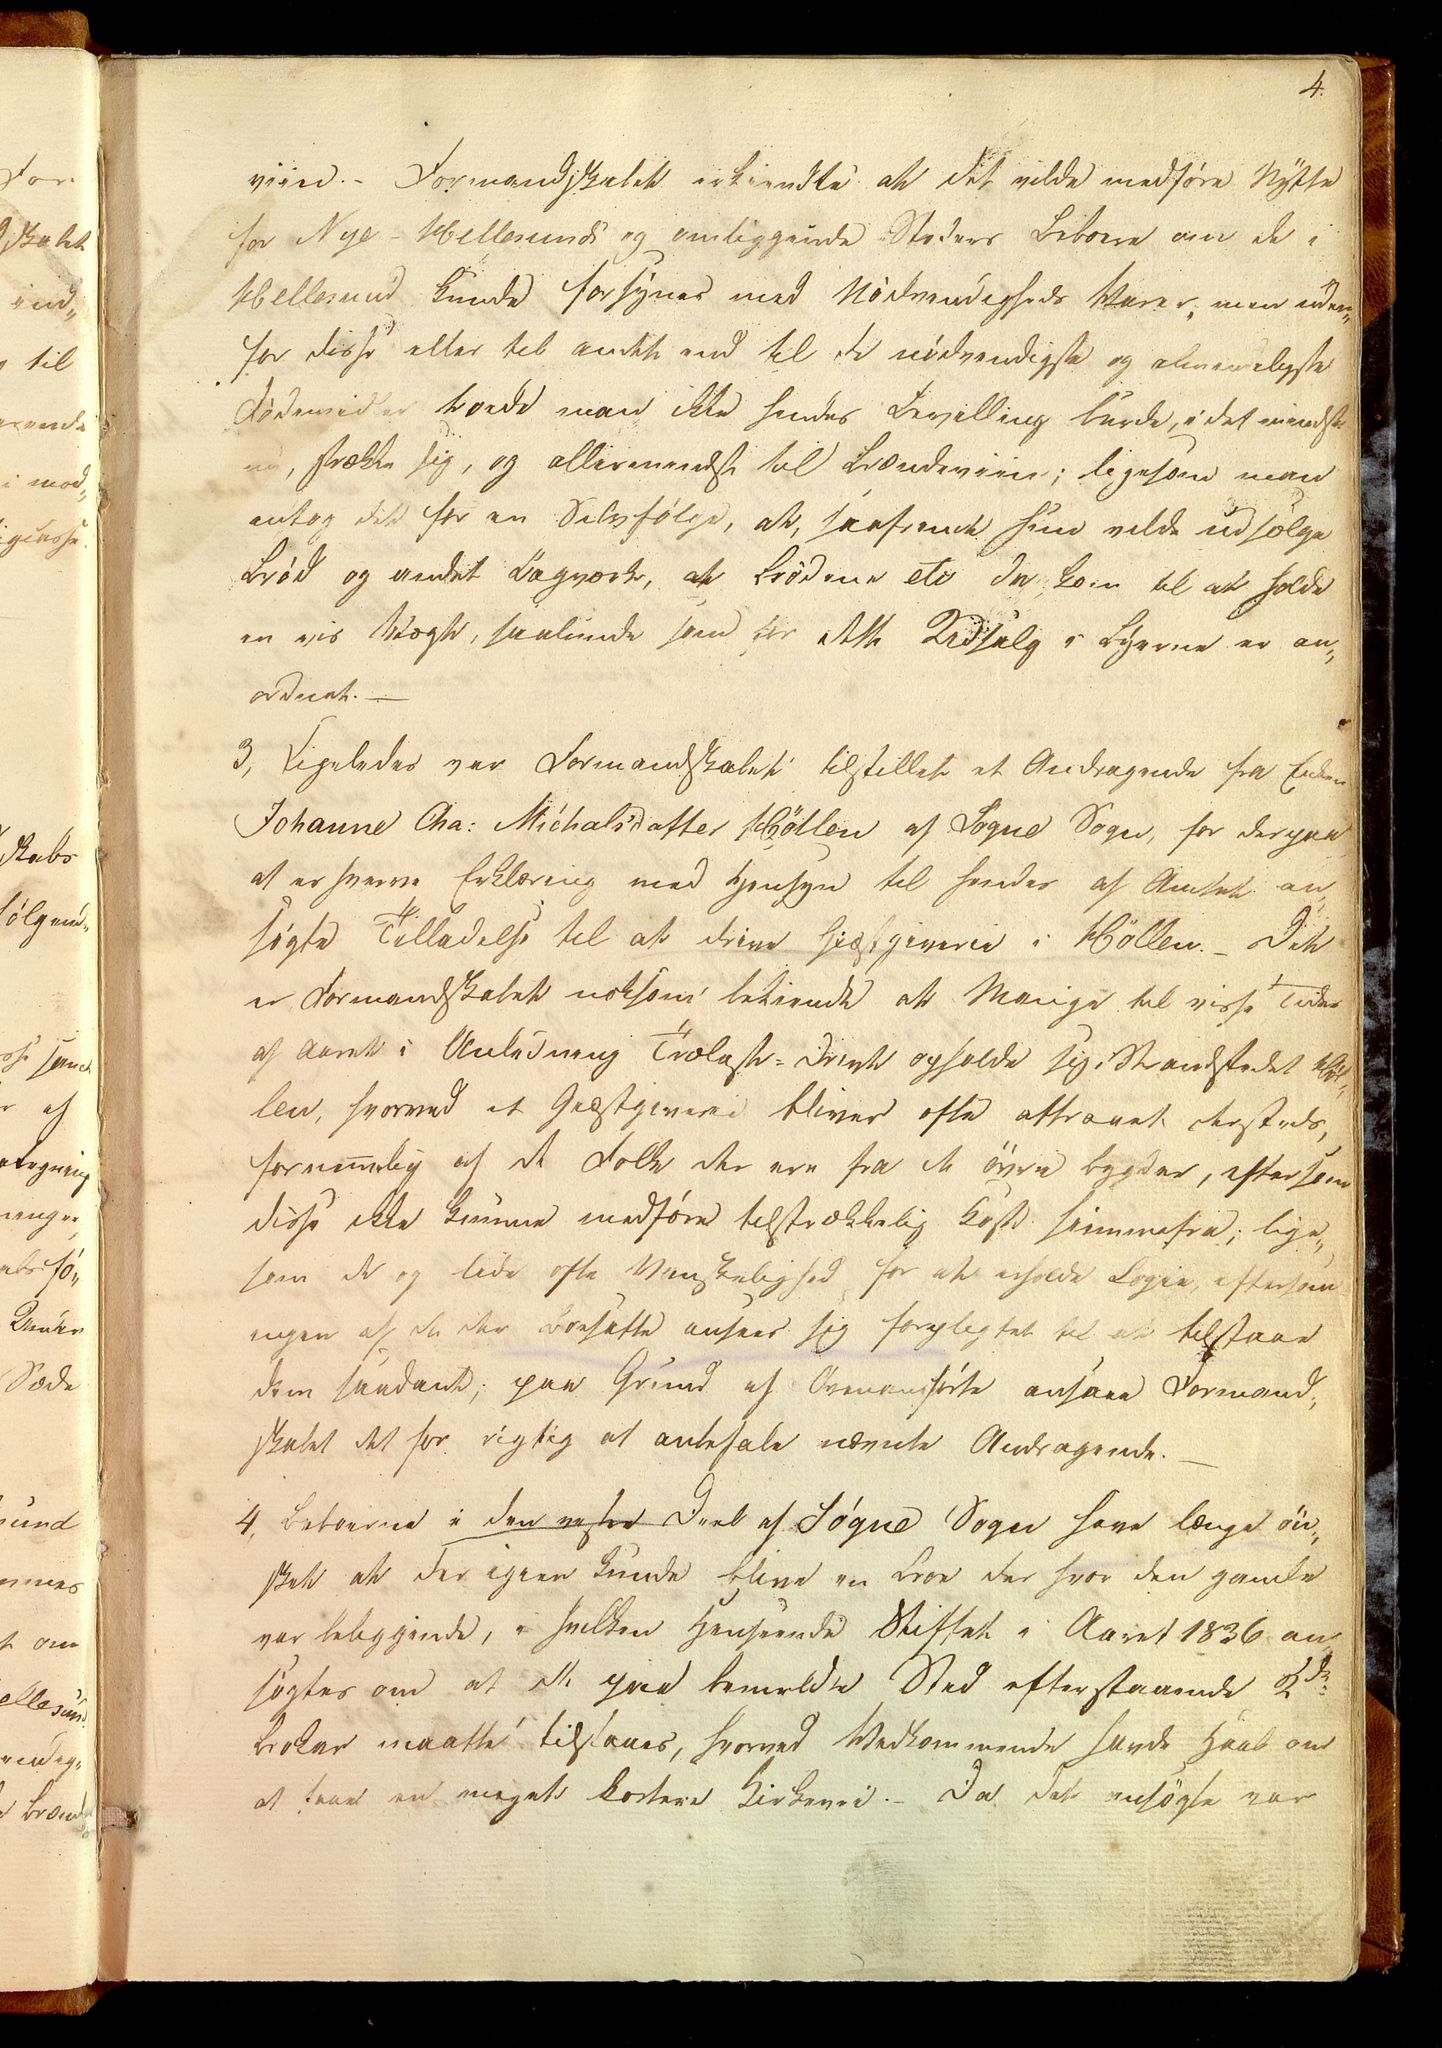 4.
viin. – Formandskabet erkiendte at det vilde medføre Nytte
for Nye-Hellesunds og omliggende Steders Beboere om de i
Hellesund kunde forsynes med Nødvendigheds Varer, men uden„
for disse eller til andet end til de nødvendigste og almindeligste
Fødemidler troede man ikke hendes Bevilling burde, i det mindste
nu, strække sig, og allermindst til Brændeviin; ligesom man
antog det for en Selvfølge, at, saafremt hun vilde udsælge
Brød og andet Bagværk, at Brødene etc da kom til at holde
en vis Vægt, saaledes som for dette Udsalg i Byerne er an„
ordnet. —
3, Ligeledes var Formandskabet tilstillet et Andragende fra Enken
Johanne Cha: Michalsdatter Høllen af Søgne Sogn, for derpaa
at erhverve Erklæring med Hensyn til hendes af Amtet an„
søgte Tilladelse til at drive Giæstgiverie i Høllen. – Det
er Formandskabet noksom bekiendt at Mange til visse Tider
af Aaret i Anledning Trælast-Drivt opholde sig i Strandstedet Høl„
len, hvorved et Giæstgiverie bliver ofte attraaet dersteds,
fornemmelig af de Folk der ere fra de øvre bygder, eftersom
disse ikke kunne medføre tilstrækkelig Kost hiemmefra; lige„
som de og lide ofte Vanskelighed for at erholde Logie, eftersom
ingen af de der Boesatte ansees sig forpligtet til at tilstaae
dem saadant; paa Grund af Ovenanførte ansaae Formand„
skabet det for rigtig at anbefale nævnte Andragende. —
4, Beboerne i den vestre Deel af Søgne Sogn have længe øn„
sket at der igien kunde blive en Broe der hvor den gamle
var beliggende, i hvilken Henseende Stiftet i Aaret 1836 an„
søgtes om at de paa bemeldte Sted efterstaaende 2de
Brokar maatte tilstaaes, hvorved Vedkommende havde Haab om
at faae en meget kortere Kirkevei. – Da det ansøgte var